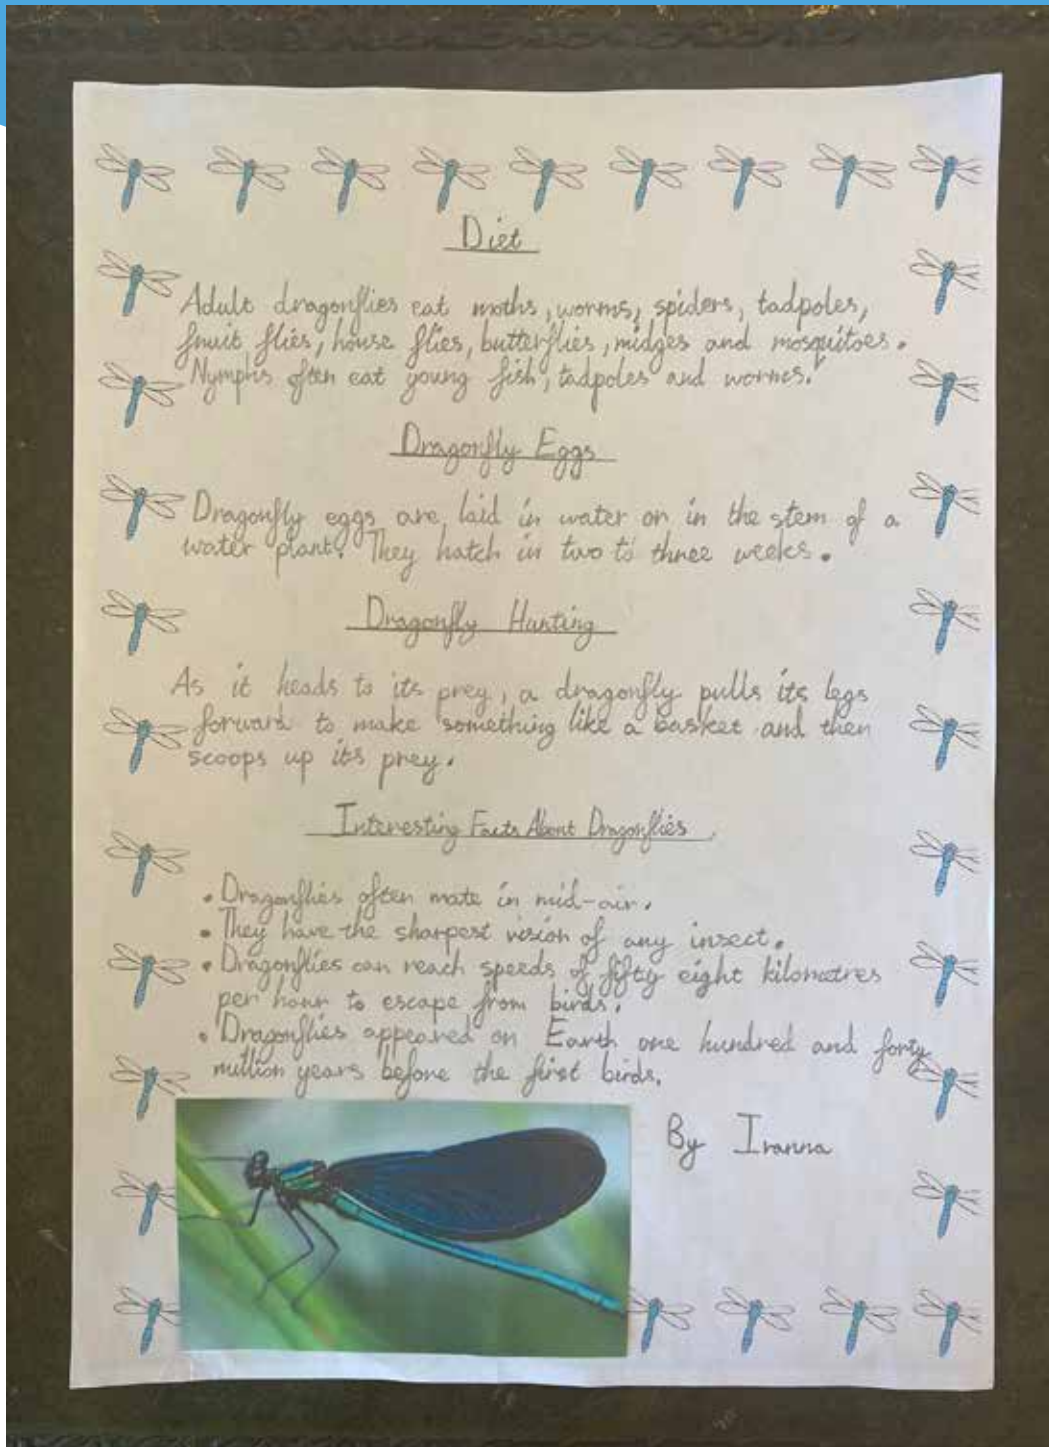 Diet
Adult dragonflies eat moths, worms, spiders, tadpoles,
fruit flies, house flies, butterflies, midges and mosquitoes.
Nymphs often eat young fish, tadpoles and worms.
Dragonfly Eggs
Dragonfly eggs are laid in water or in the stem of a
water plant. They hatch in two to three weeks.
Dragonfly Hunting
As it heads to its prey, a dragonfly pulls its legs
forward to make something like a basket and then
scoops up its prey.
Interesting Facts About Dragonflies
• Dragonflies often mate in mid-air.
• They have the sharpest vision of any insect.
• Dragonflies can reach speeds of fifty eight kilometres
per hour to escape from birds.
• Dragonflies appeared on Earth one hundred and forty
million years before the first birds.
By Iranna